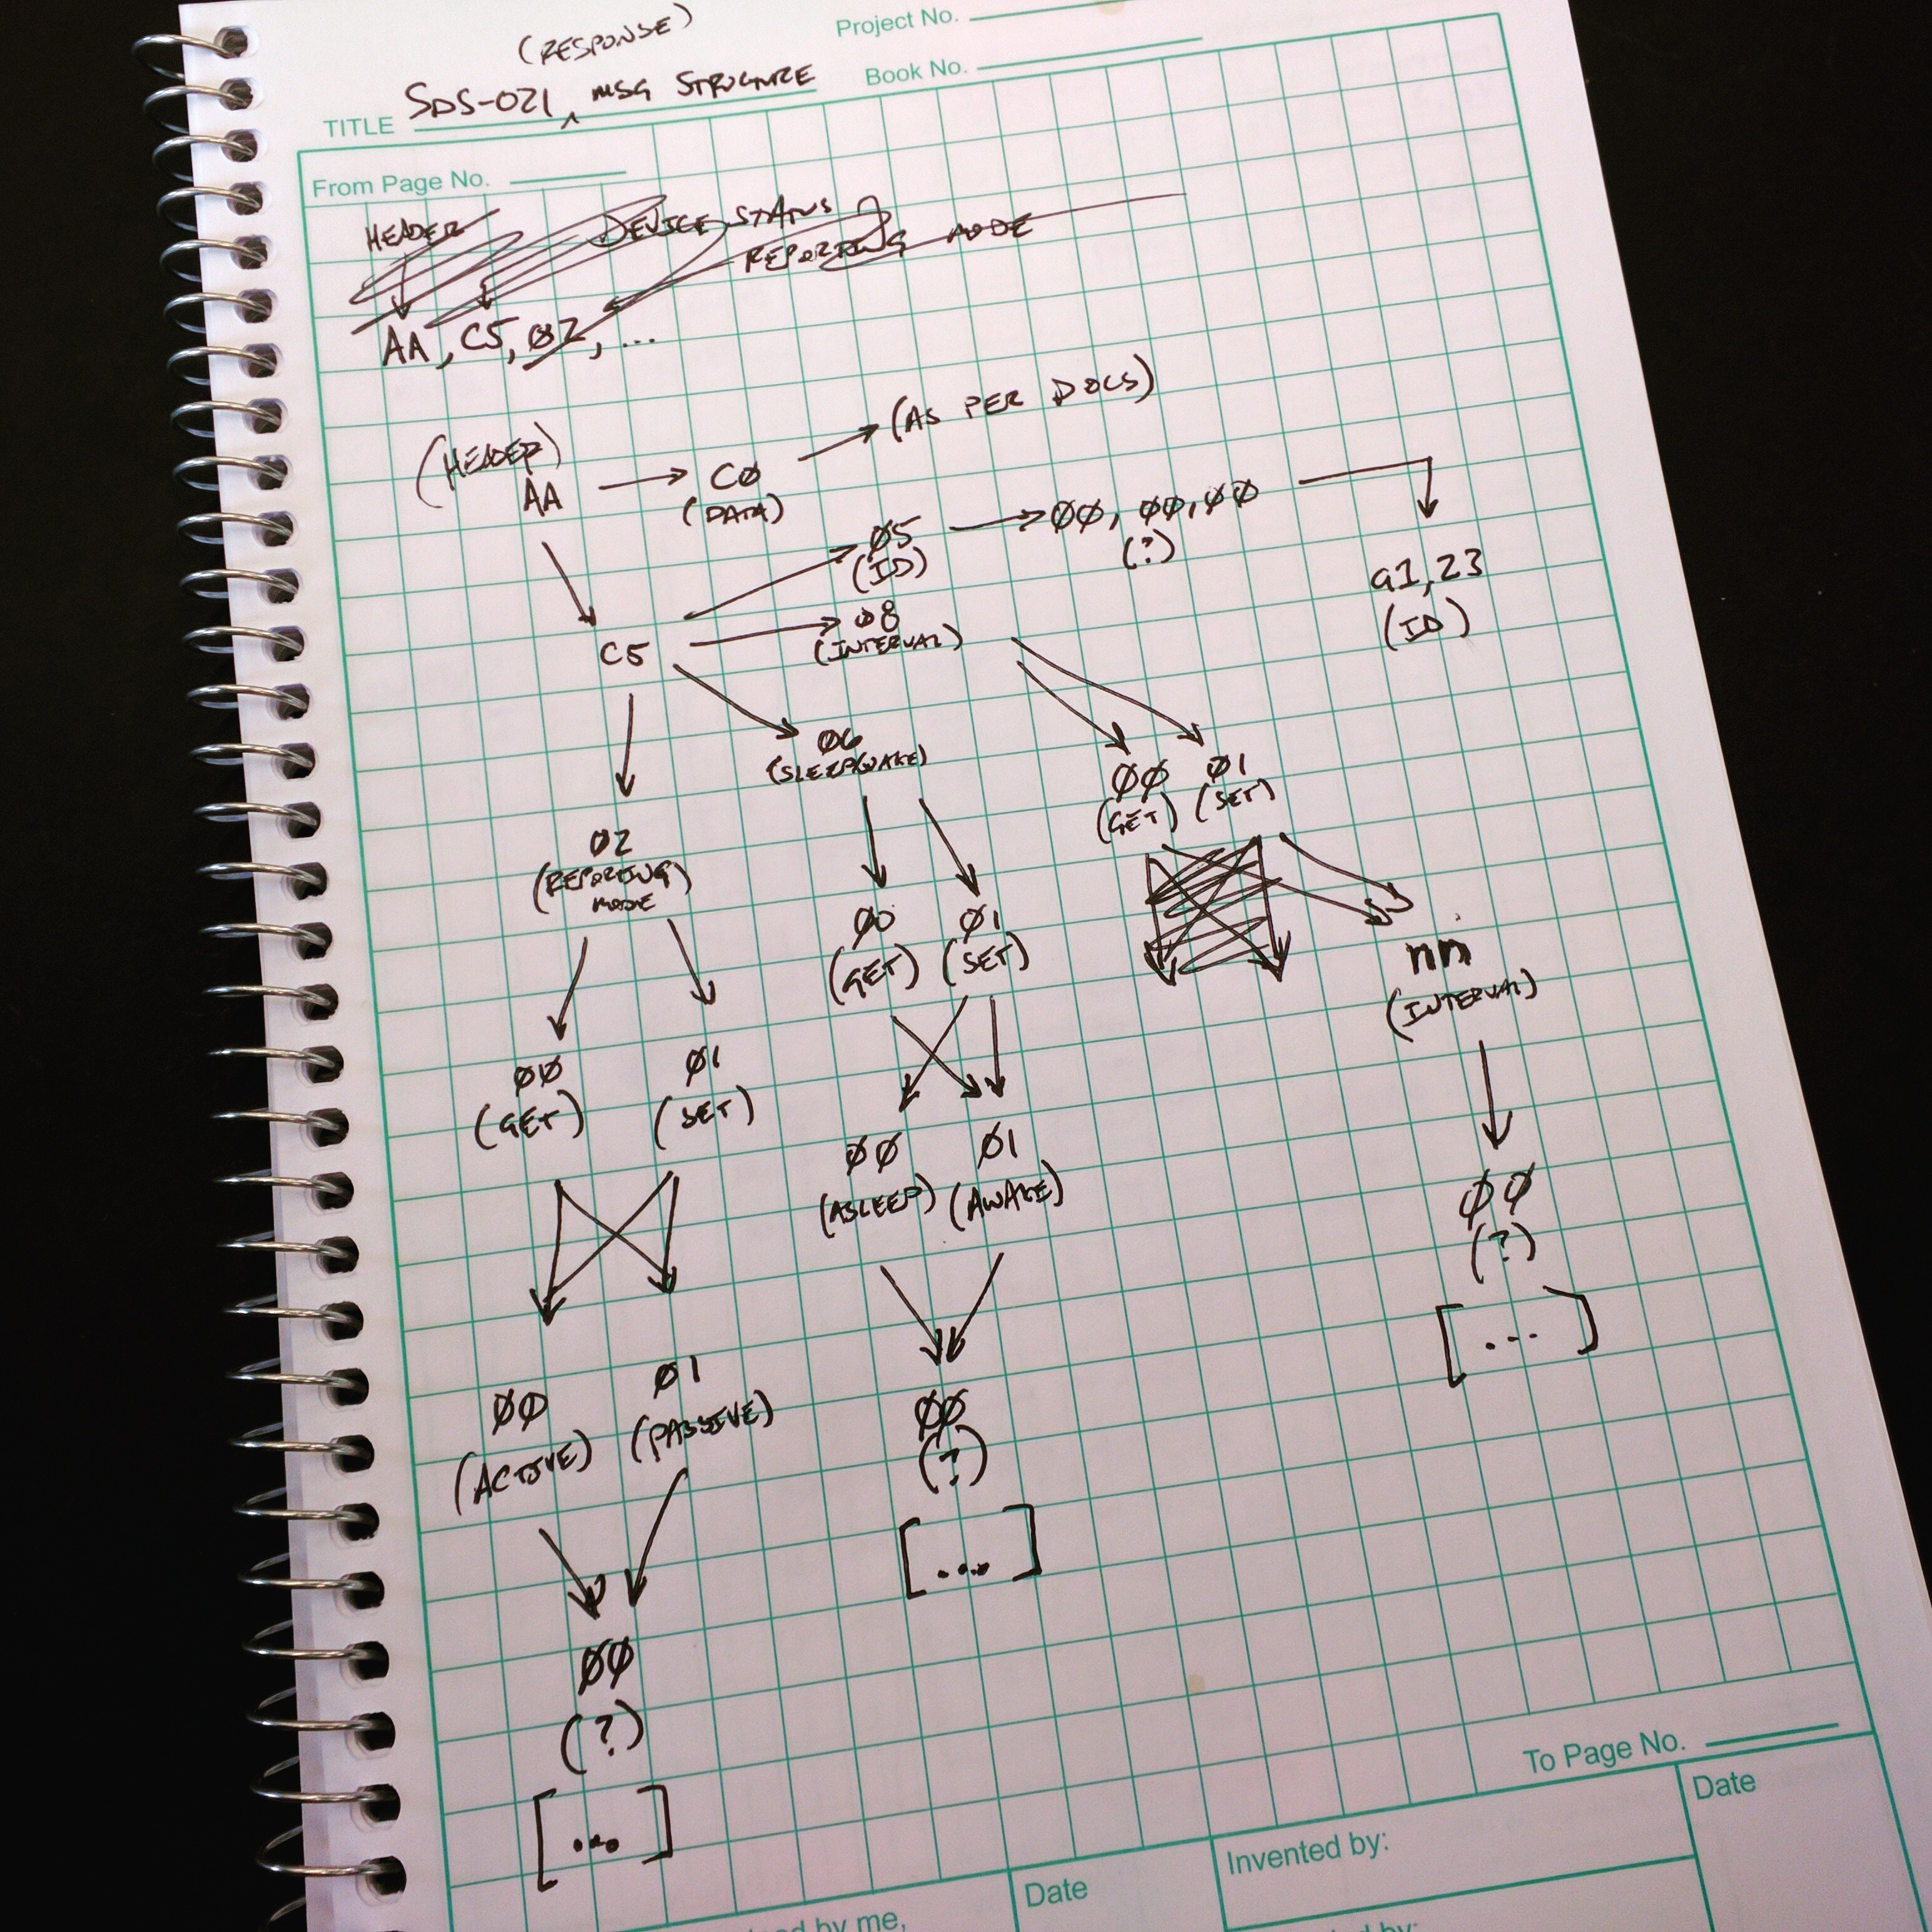 (RESPONSE)
Project No.
TITLE SDS-021 ^ MSG STRUCTURE
Book No.
From Page No.
HEADER
DEVICE STATUS
REPORTING MODE
AA, C5, 02, ...
(HEADER)
AA
C0
(DATA)
(AS PER DOCS)
C5
05
(ID)
00, 00, 00
(?)
A1, 23
(ID)
08
(INTERVAL)
06
(SLEEP/WAKE)
00 01
(GET) (SET)
02
(REPORTING
MODE
00 01
(GET) (SET)
nn
(INTERVAL)
00 01
(GET) (SET)
00 01
(ASLEEP) (AWAKE)
00
(?)
[...]
00 01
(ACTIVE) (PASSIVE)
00
(?)
[...]
00
(?)
[...]
To Page No.
Date
Invented by:
Date
by me,